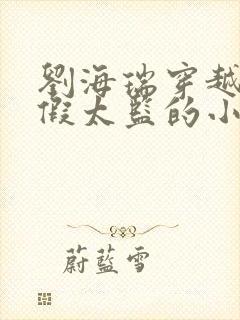 劉海瑞穿越
假太監的小
蔚藍雪